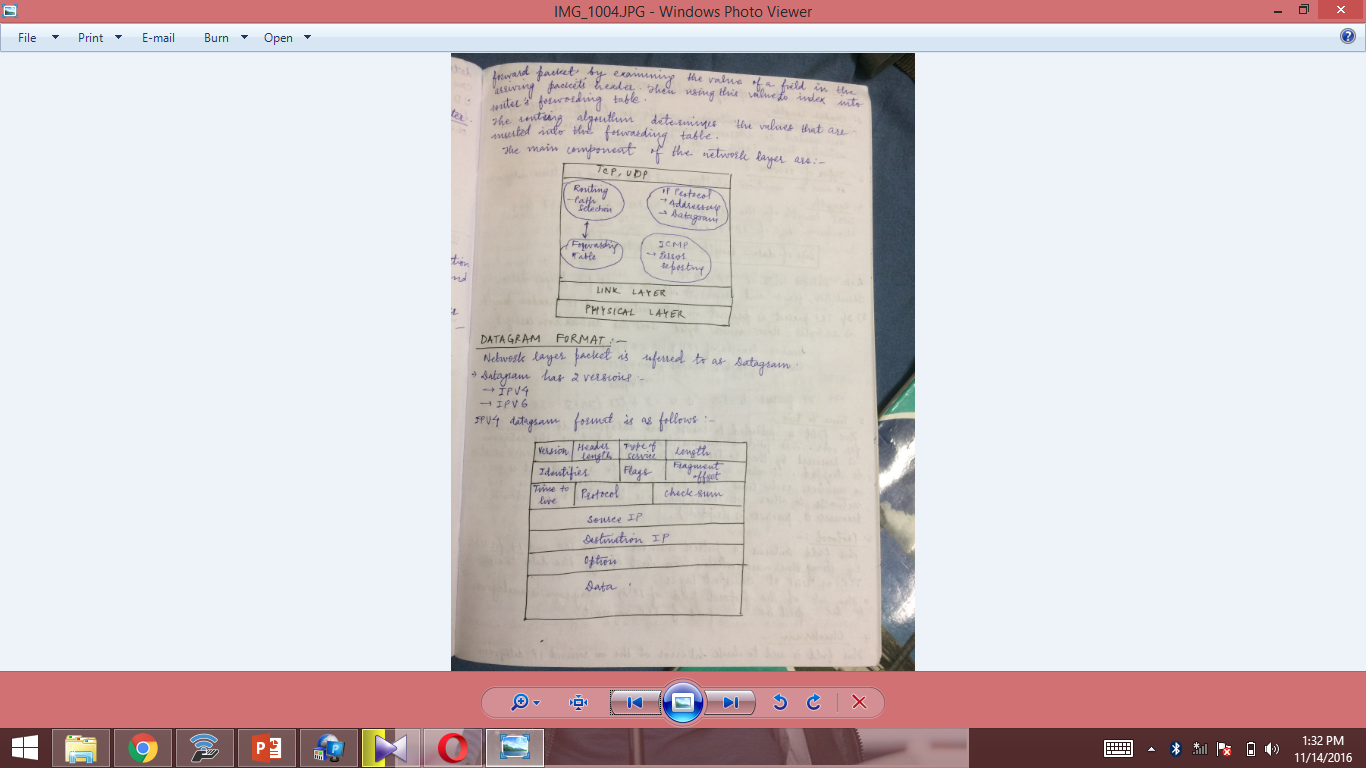 IMG_1004.JPG - Windows Photo Viewer
File Print E-mail Burn Open
forward packet by examining the value of a field in the
arriving packets header. Then using this value index into
router's forwarding table.
The routing algorithm determines the values that are
inserted into the forwarding table.
The main component of the network layer are:-
TCP, UDP
Routing
- Path
Selection
IP Protocol
→ Addressing
→ Datagram
Forwarding
Table
ICMP
→ Error
reporting
LINK LAYER
PHYSICAL LAYER
DATAGRAM FORMAT:-
Network layer packet is referred to as Datagram.
→ Datagram has 2 versions -
→ IPV4
→ IPV6
IPV4 datagram format is as follows:-
Version Header Length Type of service Length
Identifier Flags Fragment offset
Time to live Protocol check sum
Source IP
Destination IP
Option
Data
1:32 PM
11/14/2016